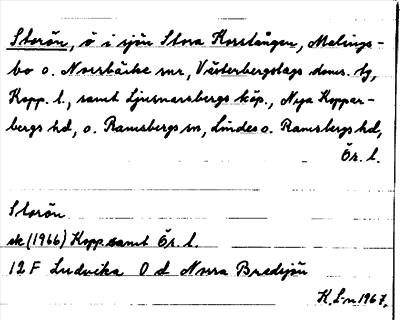 Storön, ö i sjön Stora Korslången, Malings-
bo o. Norrbärke snr, Västerbergslags doms. tg,
Kopp. l., samt Ljusnarsbergs köp., Nya Koppar-
bergs hd, o. Ramsbergs sn, Lindes o. Ramsbergs hd,
Ör. l.
Storön
sk (1966) Kopp. samt Ör. l.
12 F Ludvika O d Norra Bredsjön
K. L-n 1967.